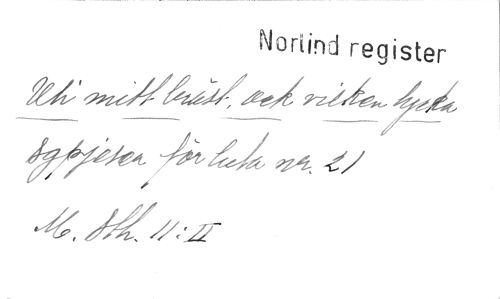 Norlind register
Uti mitt bröst, ack vilken lycka
för luta nr. 21
M. Sth. 11:II